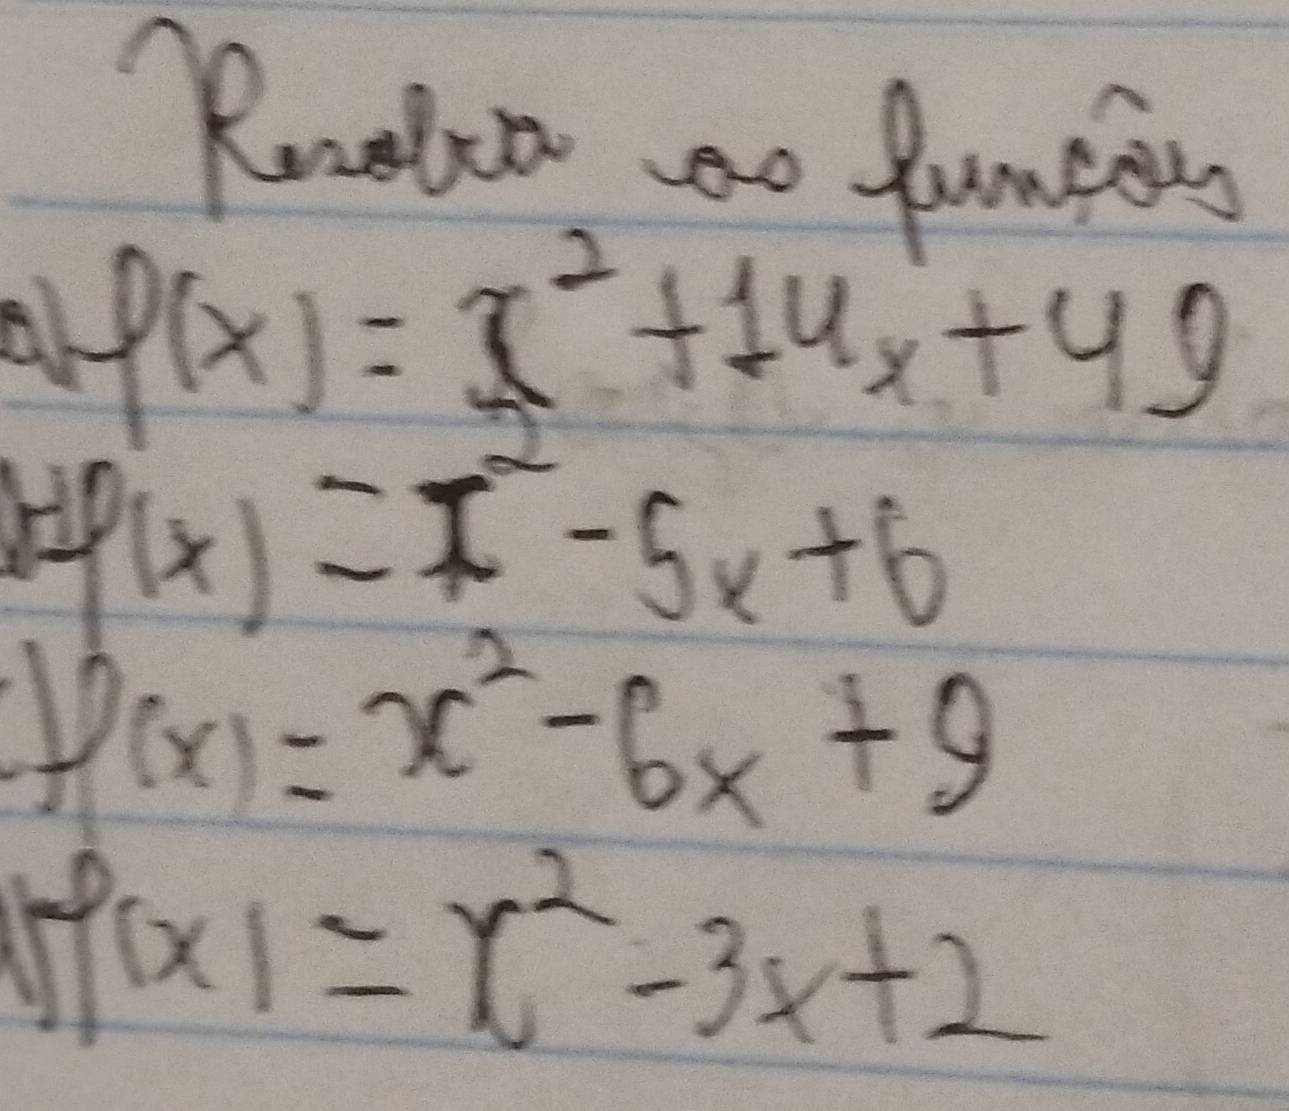 Resolva as funções
a) f(x) = x² + 14x + 49
b) f(x) = x² - 5x + 6
c) f(x) = x² - 6x + 9
d) f(x) = x² - 3x + 2